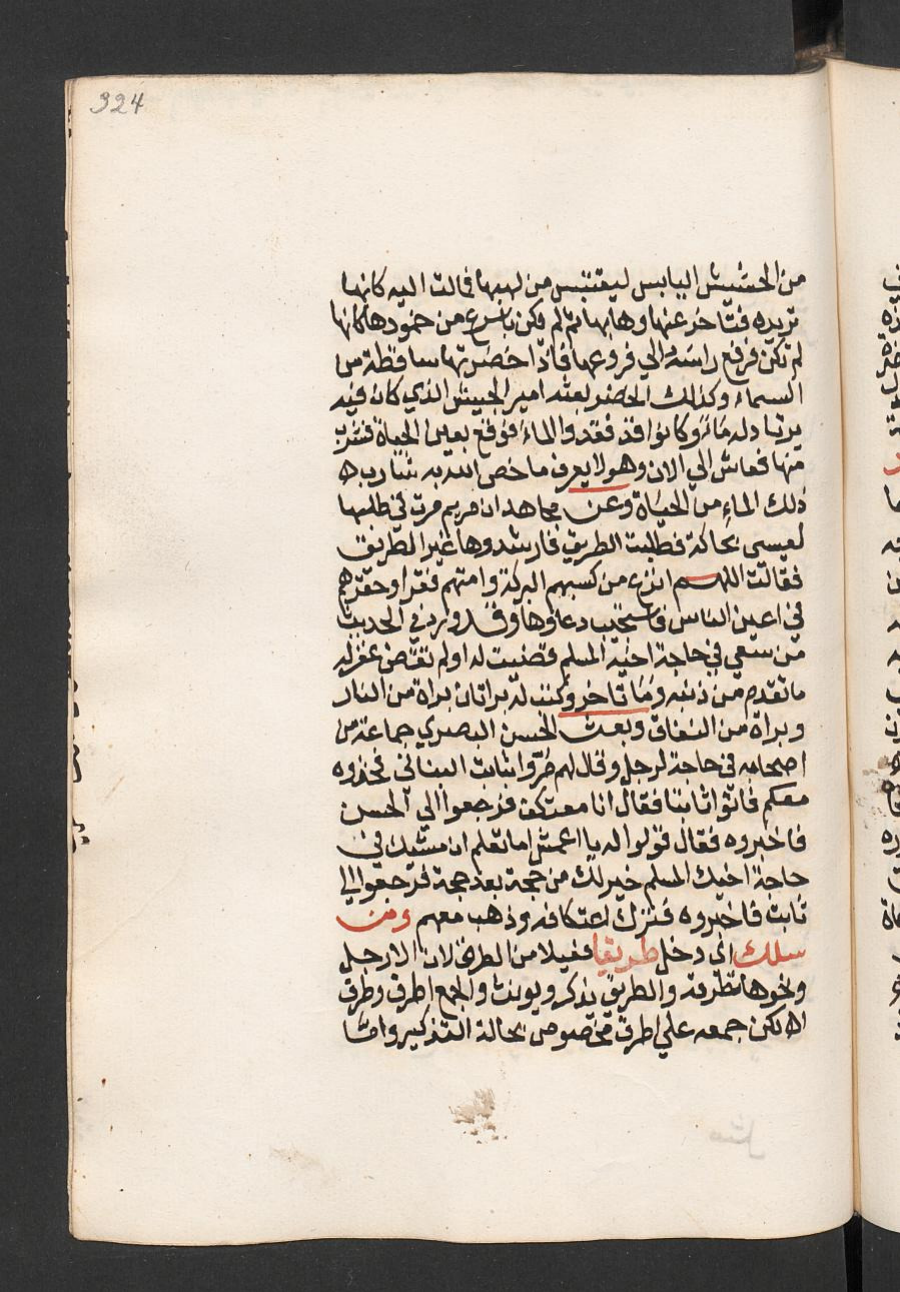 324
من الحشيش اليابس ليقتبس من لهبها فمالت اليه كانها
تريده فتاخر عنها وهابها ثم لم تكن باسرع من خمودها كانها
لم تكن فرفع راسه الي فروعها فاذا خضرتها ساقطة من
السماء وكذلك الخضر بعثه امير الجيش الذي كان فيه
يرتاد له ماء وكانوا قد فقدوا الماء فوقع بعين الحياة فشرب
منها فعاش الي الان وهو لا يعرف ما خص الله به شارب
ذلك الماء من الحياة وعن مجاهد ان مريم مرت في طلبها
لعيسي بحاكة فطلبت الطريق فارشدوها غير الطريق
فقالت اللهم انزع من كسبهم البركة وامتهم فقرا وحقرهم
في اعين الناس فاستجيب دعاؤها وقد ورد في الحديث
من سعي في حاجة اخيه المسلم قضيت له او لم تقض غفر له
ما تقدم من ذنبه وما تاخر وكتب له براتان براة من النار
وبراة من النفاق وبعث الحسن البصري جماعة من
اصحابه في حاجة لرجل وقال لهم مروا بثابت البناني فخذوه
معكم فاتوا ثابتا فقال انا معتكف فرجعوا الي الحسن
فاخبروه فقال قولوا له يا اعمش اما تعلم ان مشيك في
حاجة اخيك المسلم خير لك من حجة بعد حجة فرجعوا الي
ثابت فاخبروه فترك اعتكافه وذهب معهم ومن
سلك اي دخل طريقا فعيلا من الطرق لان الارجل
ونحوها تطرقه والطريق يذكر ويونث والجمع اطرق وطرق
لكن جمعه علي اطرق مخصوص بحالة التذكير واما